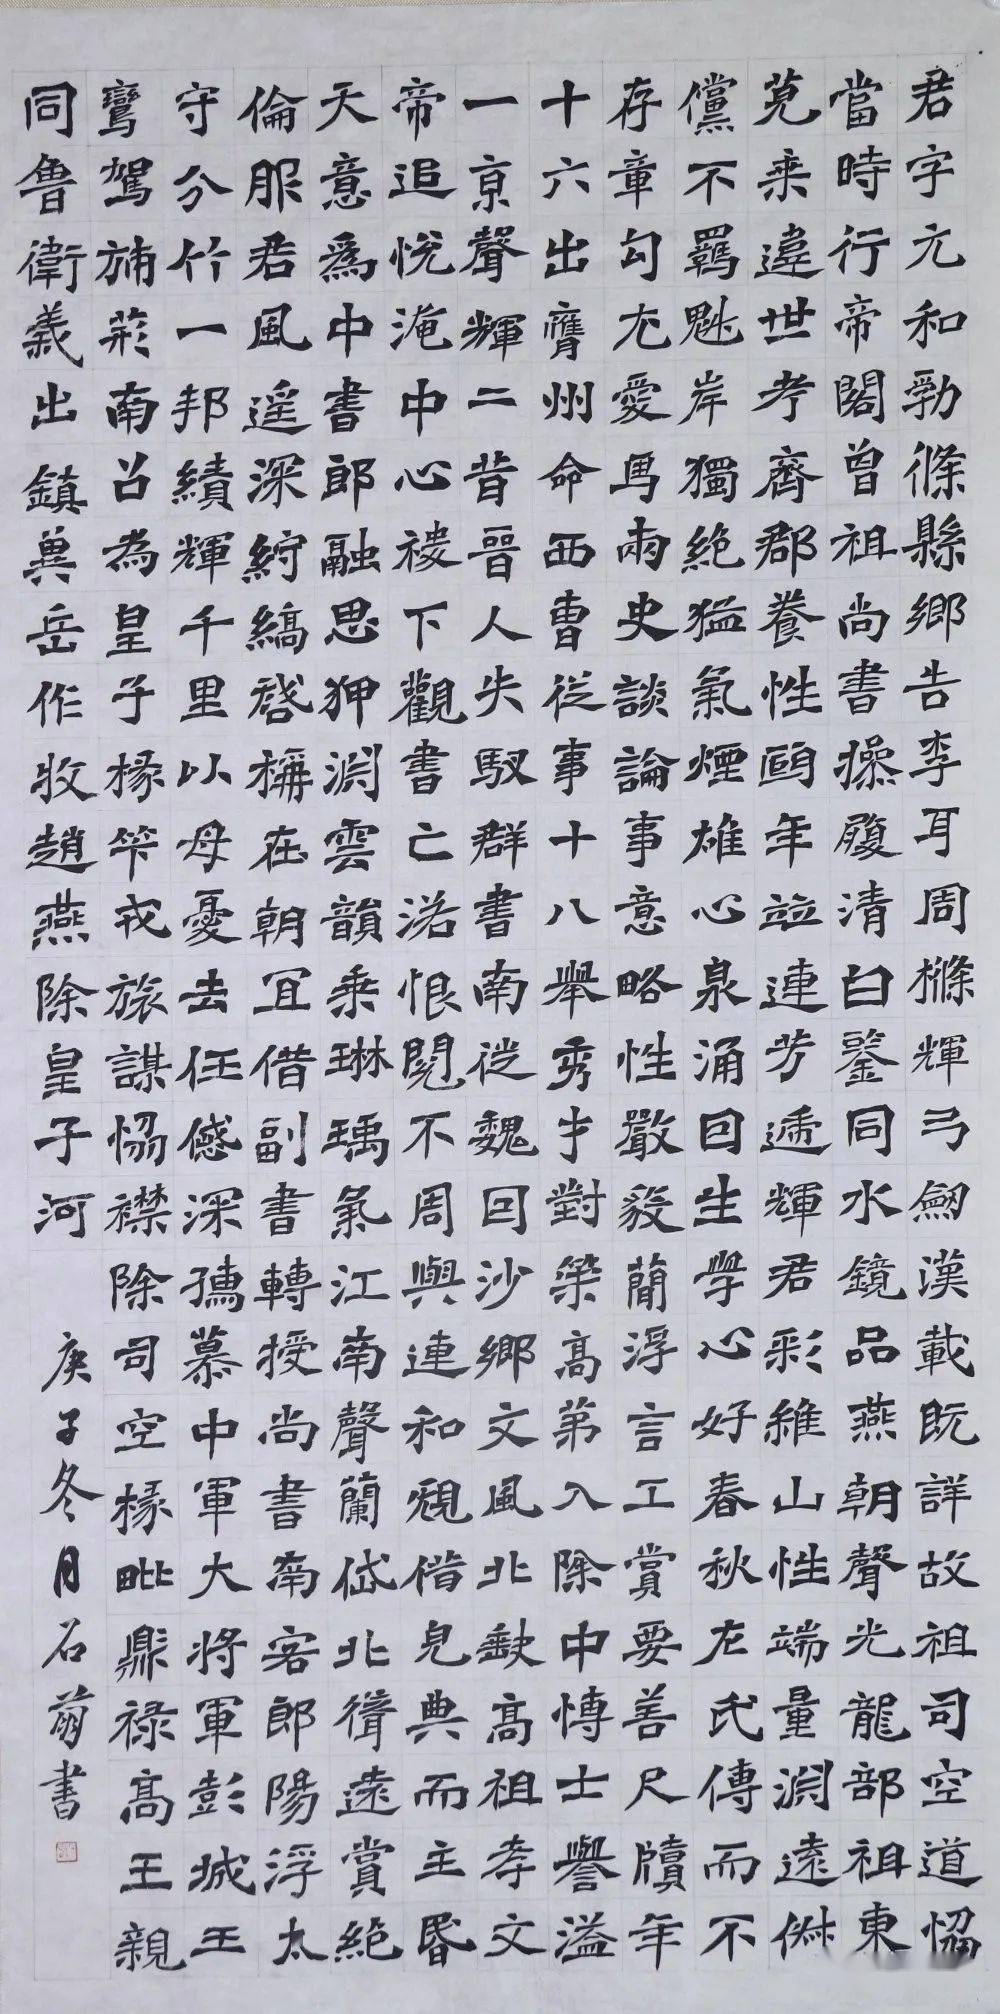 君字元和勃條縣鄉告李耳周樤輝弓劒漢載既詳故祖司空道恊
當時行帝閣曾祖尚書操履清白鑒同水鏡品燕朝聲光龍部祖東
莞乘違世考齊郡養性頤年竝連芳遞輝君彩維山性端量淵遠俶
儻不羈魁岸獨絶猛氣煙雄心泉涌曰生學心好春秋左氏傳而不
存章句尤愛馬兩史談論事意略性嚴毅簡浮言工賞要善尺牘年
十六出膺州命西曹從事十八舉秀才對策高第入除中博士譽溢
一京聲輝二昔晉人失馭群書南從魏回沙鄉文風北缺高祖孝文
帝追悦淹中心祾下觀書亡落恨閲不周與連和規借見典而主昬
天意爲中書郎融思狎淵雲韻乘琳瑀氣江南聲蘭岱北聳遠賞絶
倫服君風遥深紵縞啓稱在朝宜借副書轉授尚書南客郎陽浮太
守分竹一邦績輝千里以母憂去任憾深孺慕中軍大將軍彭城王
鸞駕旆荊南召為皇子椽笇戎旅謀恊襟除司空椽毗鼎祿高王親
同魯衛義出鎮冀岳作牧趙燕除皇子河
庚子冬月石書